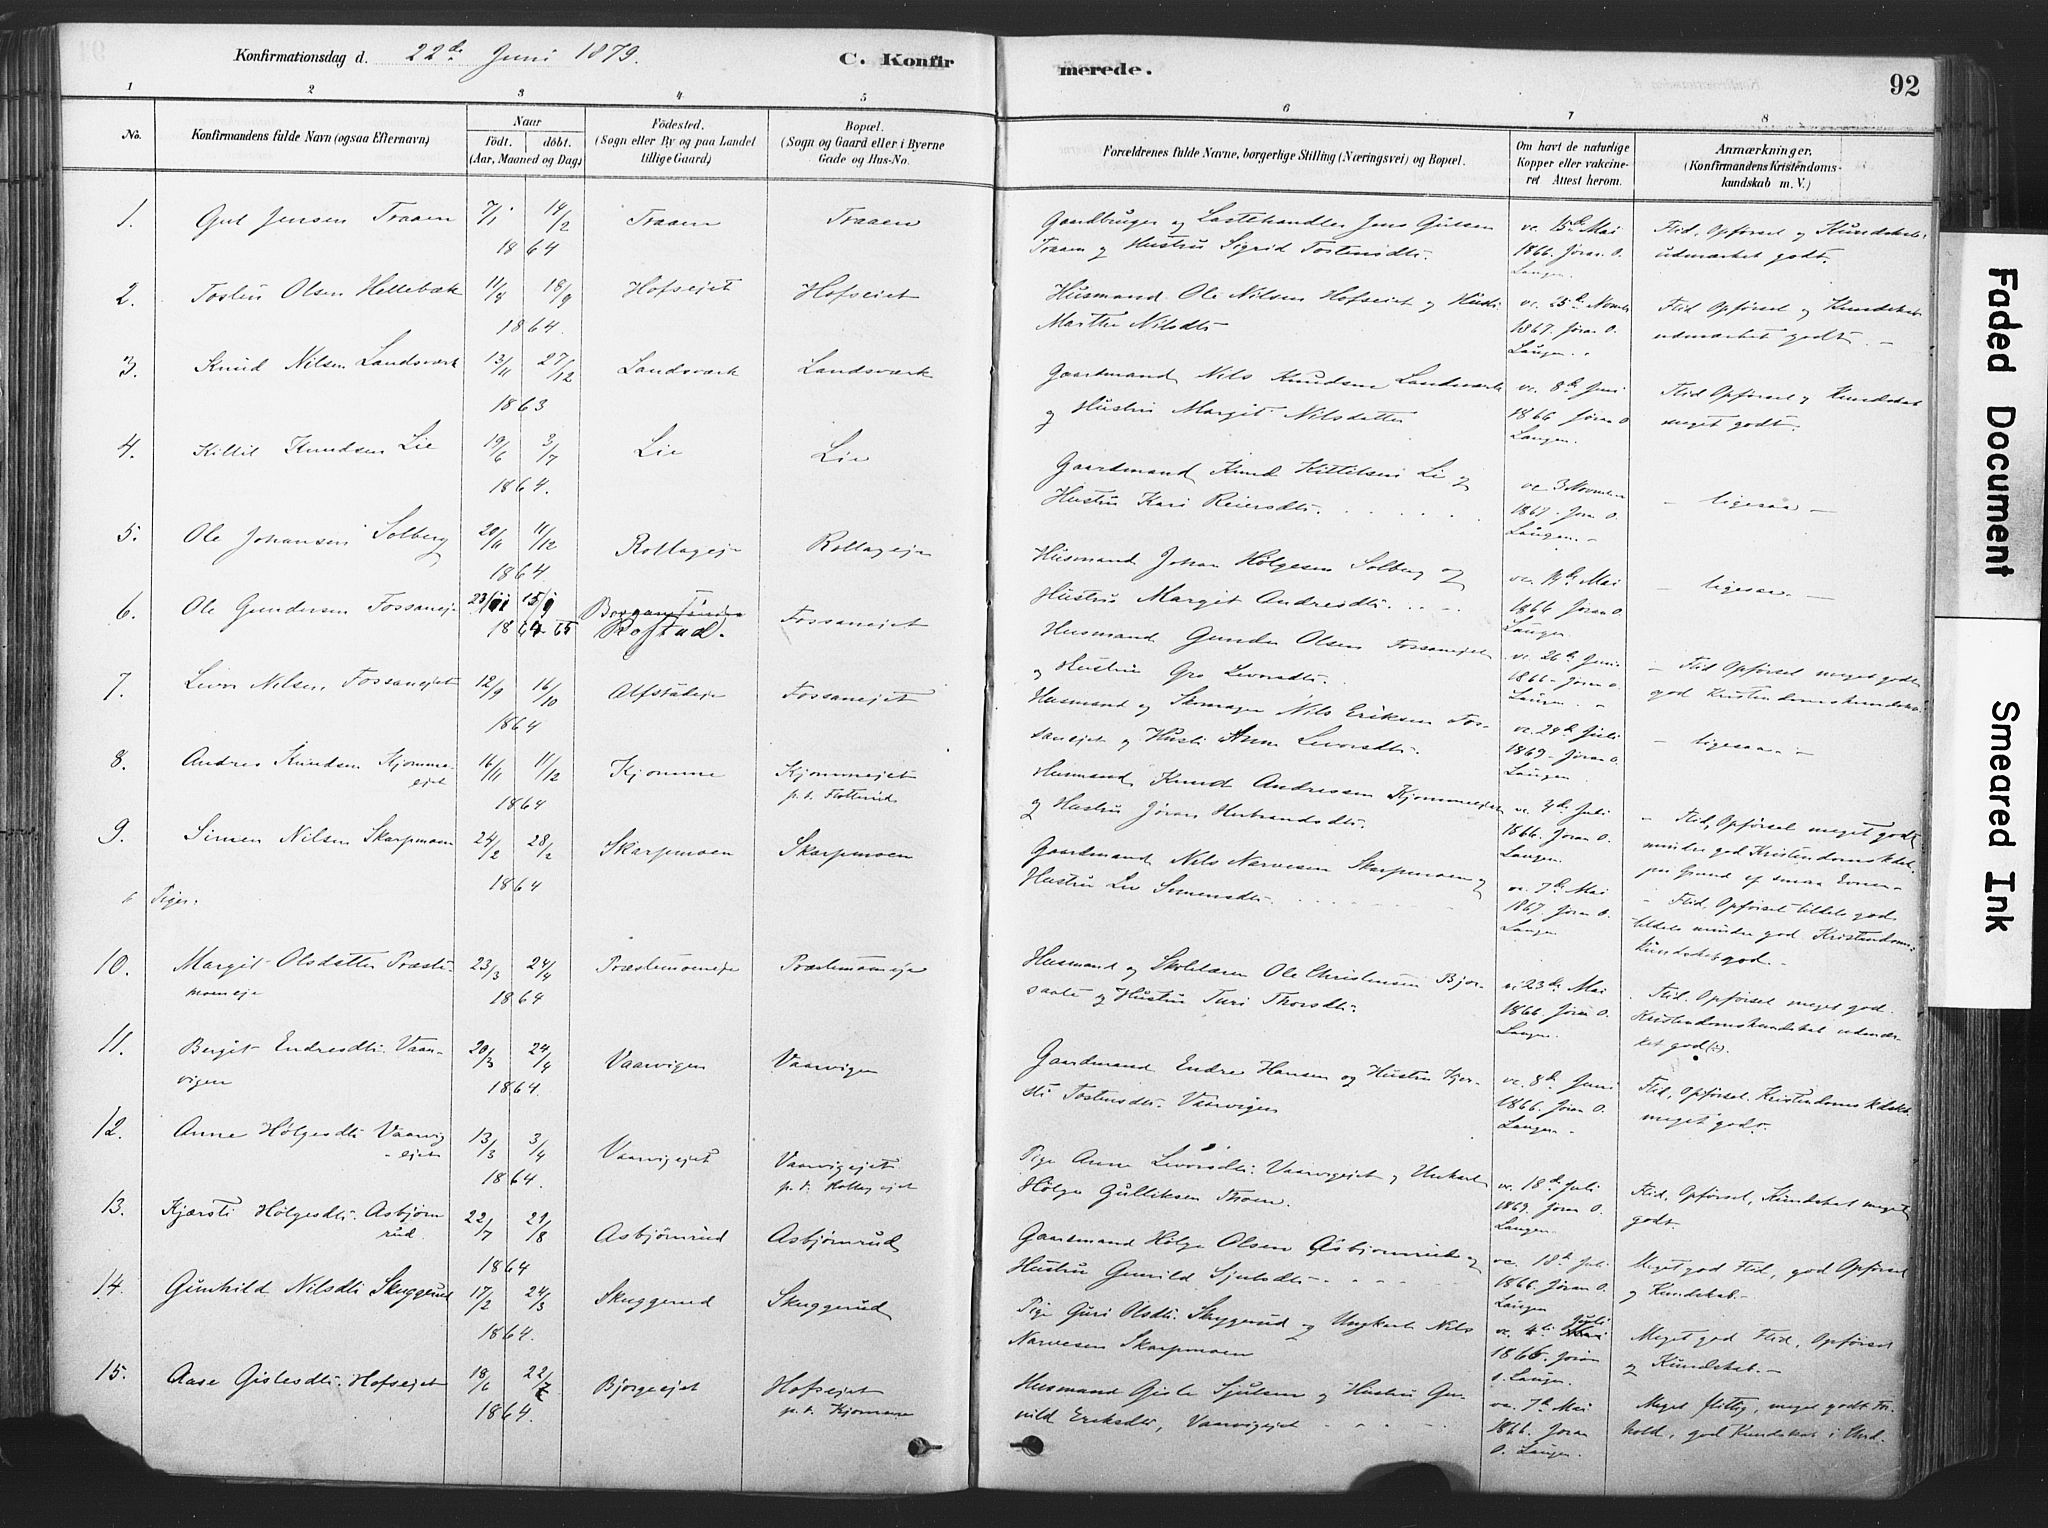 Konfirmationsdag d. 22de Juni 1879.
C. Konfir
merede.
92
1 2 3 4 5 6 7 8
No.
Konfirmandens fulde Navn (ogsaa Efternavn)
Naar
Födt. döbt.
(Aar, Maaned og Dag)
Födested.
(Sogn eller By og paa Landet
tillige Gaard)
Bopæl.
(Sogn og Gaard eller i Byerne
Gade og Hus-No.
Forældrenes fulde Navne, borgerlige Stilling (Næringsvei) og Bopæl.
Om havt de naturlige
Kopper eller vakcine-
ret Attest herom.
Anmærkninger.
(Konfirmandens Kristendoms-
kundskab m. V.)
1. Gul Jensen Traaen 7/1 14/2 Traaen Traaen
1864
Gaardbruger og Lastehandler Jens Gulsen
Traaen og Hustru Sigrid Tostensdtr.
vc. 15de Mai
1866. Jöran O.
Laugen.
Flid, Opförsel og Kundskab
udmærket godt.
2. Tosten Olsen Hellebæk 11/8 18/9 Hofsejet Hofseiet
1864.
Husmand Ole Nilsen Hofseiet og Hustr.
Marthe Nilsdtr
vc. 25de Novembr
1867. Jöran O.
Laugen.
Flid Opförsel og Kundskab
udmærket godt. —
3. Knud Nilsen Landsværk 13/11 27/12 Landsværk Landsværk
1863
Gaardmand Nils Knudsen Landsværk
og Hustru Margit Nilsdatter
vc. 8de Juni
1866 Jöran O.
Laugen.
Flid Opförsel og Kundskab
meget godt.
4. Kittil Knudsen Lie 19/6 3/7 Lie Lie
1864.
Gaardmand Knud Kittilsen Li og
Hustru Kari Reiersdtr.
vc 3 November
1867. Jöran O.
Laugen. —
— ligesaa —
5. Ole Johansen Solberg 20/11 11/12 Rollageje Rollageje
1864
Husmand Johan Hölgesen Solberg og
Hustru Margit Andresdtr.
vc. Mai
1866 Jöran O.
Laugen.
— ligesaa. —
6. Ole Gundersen Fossaneje 23/11 15/1 Fossanejet
1864-65 Rofstad.
Husmand Gunder Olsen Fossanejet
og Hustru Gro Levorsdtr.
vc. 26de Juni
1866. Jöran O.
Laugen.
— Flid Opförsel meget godt
god Kristendomskundskab.
7. Levor Nilsen Fossanejet 12/9 16/10 Alfstadeje Fossanejet
1864
Husmand og Skomager Nils Eriksen Fos-
sanejet og Hustr Anne Levorsdtr.
vc. 29de Juli
1869. Jöran O.
Laugen.
— ligesaa —
8. Andres Knudsen Kjomme- 16/11 11/12 Kjomme Kjommejet
ejet 1864 p. t. Flatterud
Husmand Knud Andressen Kjommeejet
og Hustru Jöran Herbrandsdtr.
vc. 4de Juli
1866. Jöran O.
Laugen.
— Flid, Opförsel meget godt
mindre god Kristendomskdskab
paa Grund af smaa Evner —
9. Simen Nilsen Skarpmoen 24/2 28/2 Skarpmoen Skarpmoen
1864
Gaardmand Nils Narvesen Skarpmoen og
Hustru Liv Simensdtr.
vc. 7de Mai
1867. Jöran O.
Laugen
— Flid, Opförsel tildels god
tildels mindre god Kristendoms-
kundskab god. —
6 Piger:
10. Margit Olsdatter Præste- 23/3 24/4 Præstemoeneje Præstemoeneje
moeneje 1864
Husmand og Skolelærer Ole Christensen Bjor-
saate og Hustru Turi Thorsdtr.
vc 23de Mai
1866. Jöran O.
Laugen.
Flid. Opförsel meget god.
Kristendomskundskab udmær-
ket god(t).
11. Bergit Endresdtr. Vaar- 20/3 24/4 Vaarvigen Vaarvigen
vigen 1864.
Gaardmand Endre Hansen og Hustru Kjer-
sti Tostensdtr. Vaarvigen
vc. 8de Juni
1866. Jöran O.
Laugen. —
Flid, Opförsel, Kristendomskdskab
meget godt.
12. Anne Hölgesdtr Vaarvig 13/3 3/4 Vaarvigejet Vaarvigejet
-ejet 1864. p. t. Rollagejet
Pige Anne Levorsdtr. Vaarvigejet og Unkarl
Hölge Gulliksen Thoen.
vc. 18de Juli
1869. Jöran O.
Laugen.
Flid, Opförsel, Kundskab meget
godt.
13. Kjærsti Hölgesdtr. Asbjörn 22/7 21/8 Asbjörnrud Asbjörnrud
rud. 1864
Gaardmand Hölge Olsen Asbjörnrud og
Hustru Gunild Sjulsdtr.
vc. 18de Juli
1866. Jöran O.
Laugen
Meget god Flid, god Opförsel
og Kundskab. —
14. Gunhild Nilsdtr Skuggerud 17/2 24/3 Skuggerud Skuggerud
1864.
Pige Guri Olsdtr. Skuggerud og Ungkarl Nils
Narvesen Skarpmoen
vc. 4de Juli
1866. Jöran
O. Laugen.
Meget god Flid, Opförsel
og Kundskab. —
15. Aase Gislesdtr. Hofsejet 18/6 22/7 Björgeejet Hofsejet
1864. p. t. Kjomme
Husmand Gisle Sjulsen og Hustru Gu-
nild Eriksdtr, Vaarvigejet
vc. 7de Mai
1866. Jöran
O. Laugen.
Meget flittig, meget godt For-
hold, god Kundskab i Chrd.
Faded Document
Smeared Ink